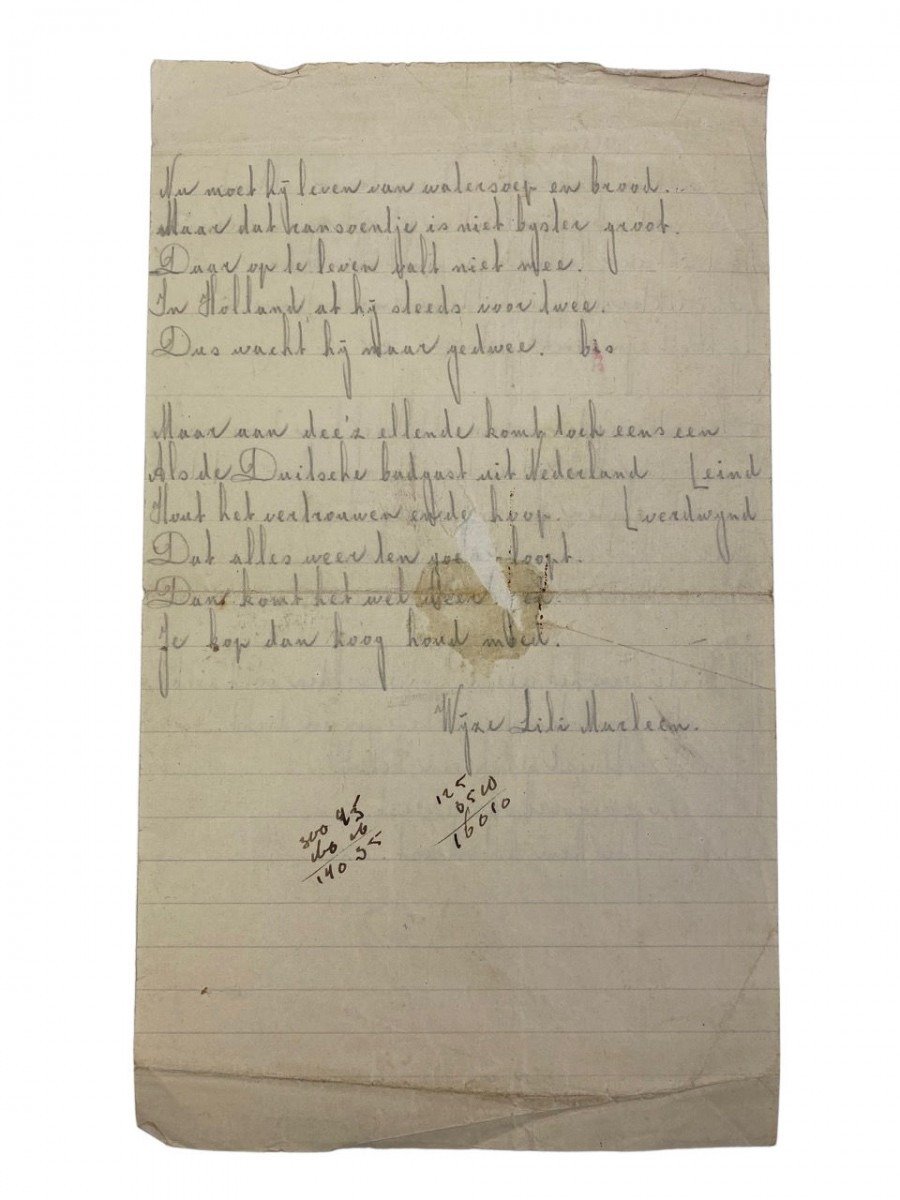 Nu moet hÿ leven van watersoep en brood...
Maar dat ransoentje is niet byster groot.
Daar op te leven valt niet mee.
In Holland at hÿ steeds voor twee.
Dus wacht hÿ maar gedwee. bis
Maar aan dee'z ellende komt toch eens een
Als de Duitsche badgast uit Nederland [eind
Hout het vertrouwen en de hoop. [verdwynd
Dat alles weer ten loopt.
Dan komt het wel weer
Je kop dan hoog houd moed.
Wÿze Lili Marleen.
125
6510
300 45
160 10
16010
140 35